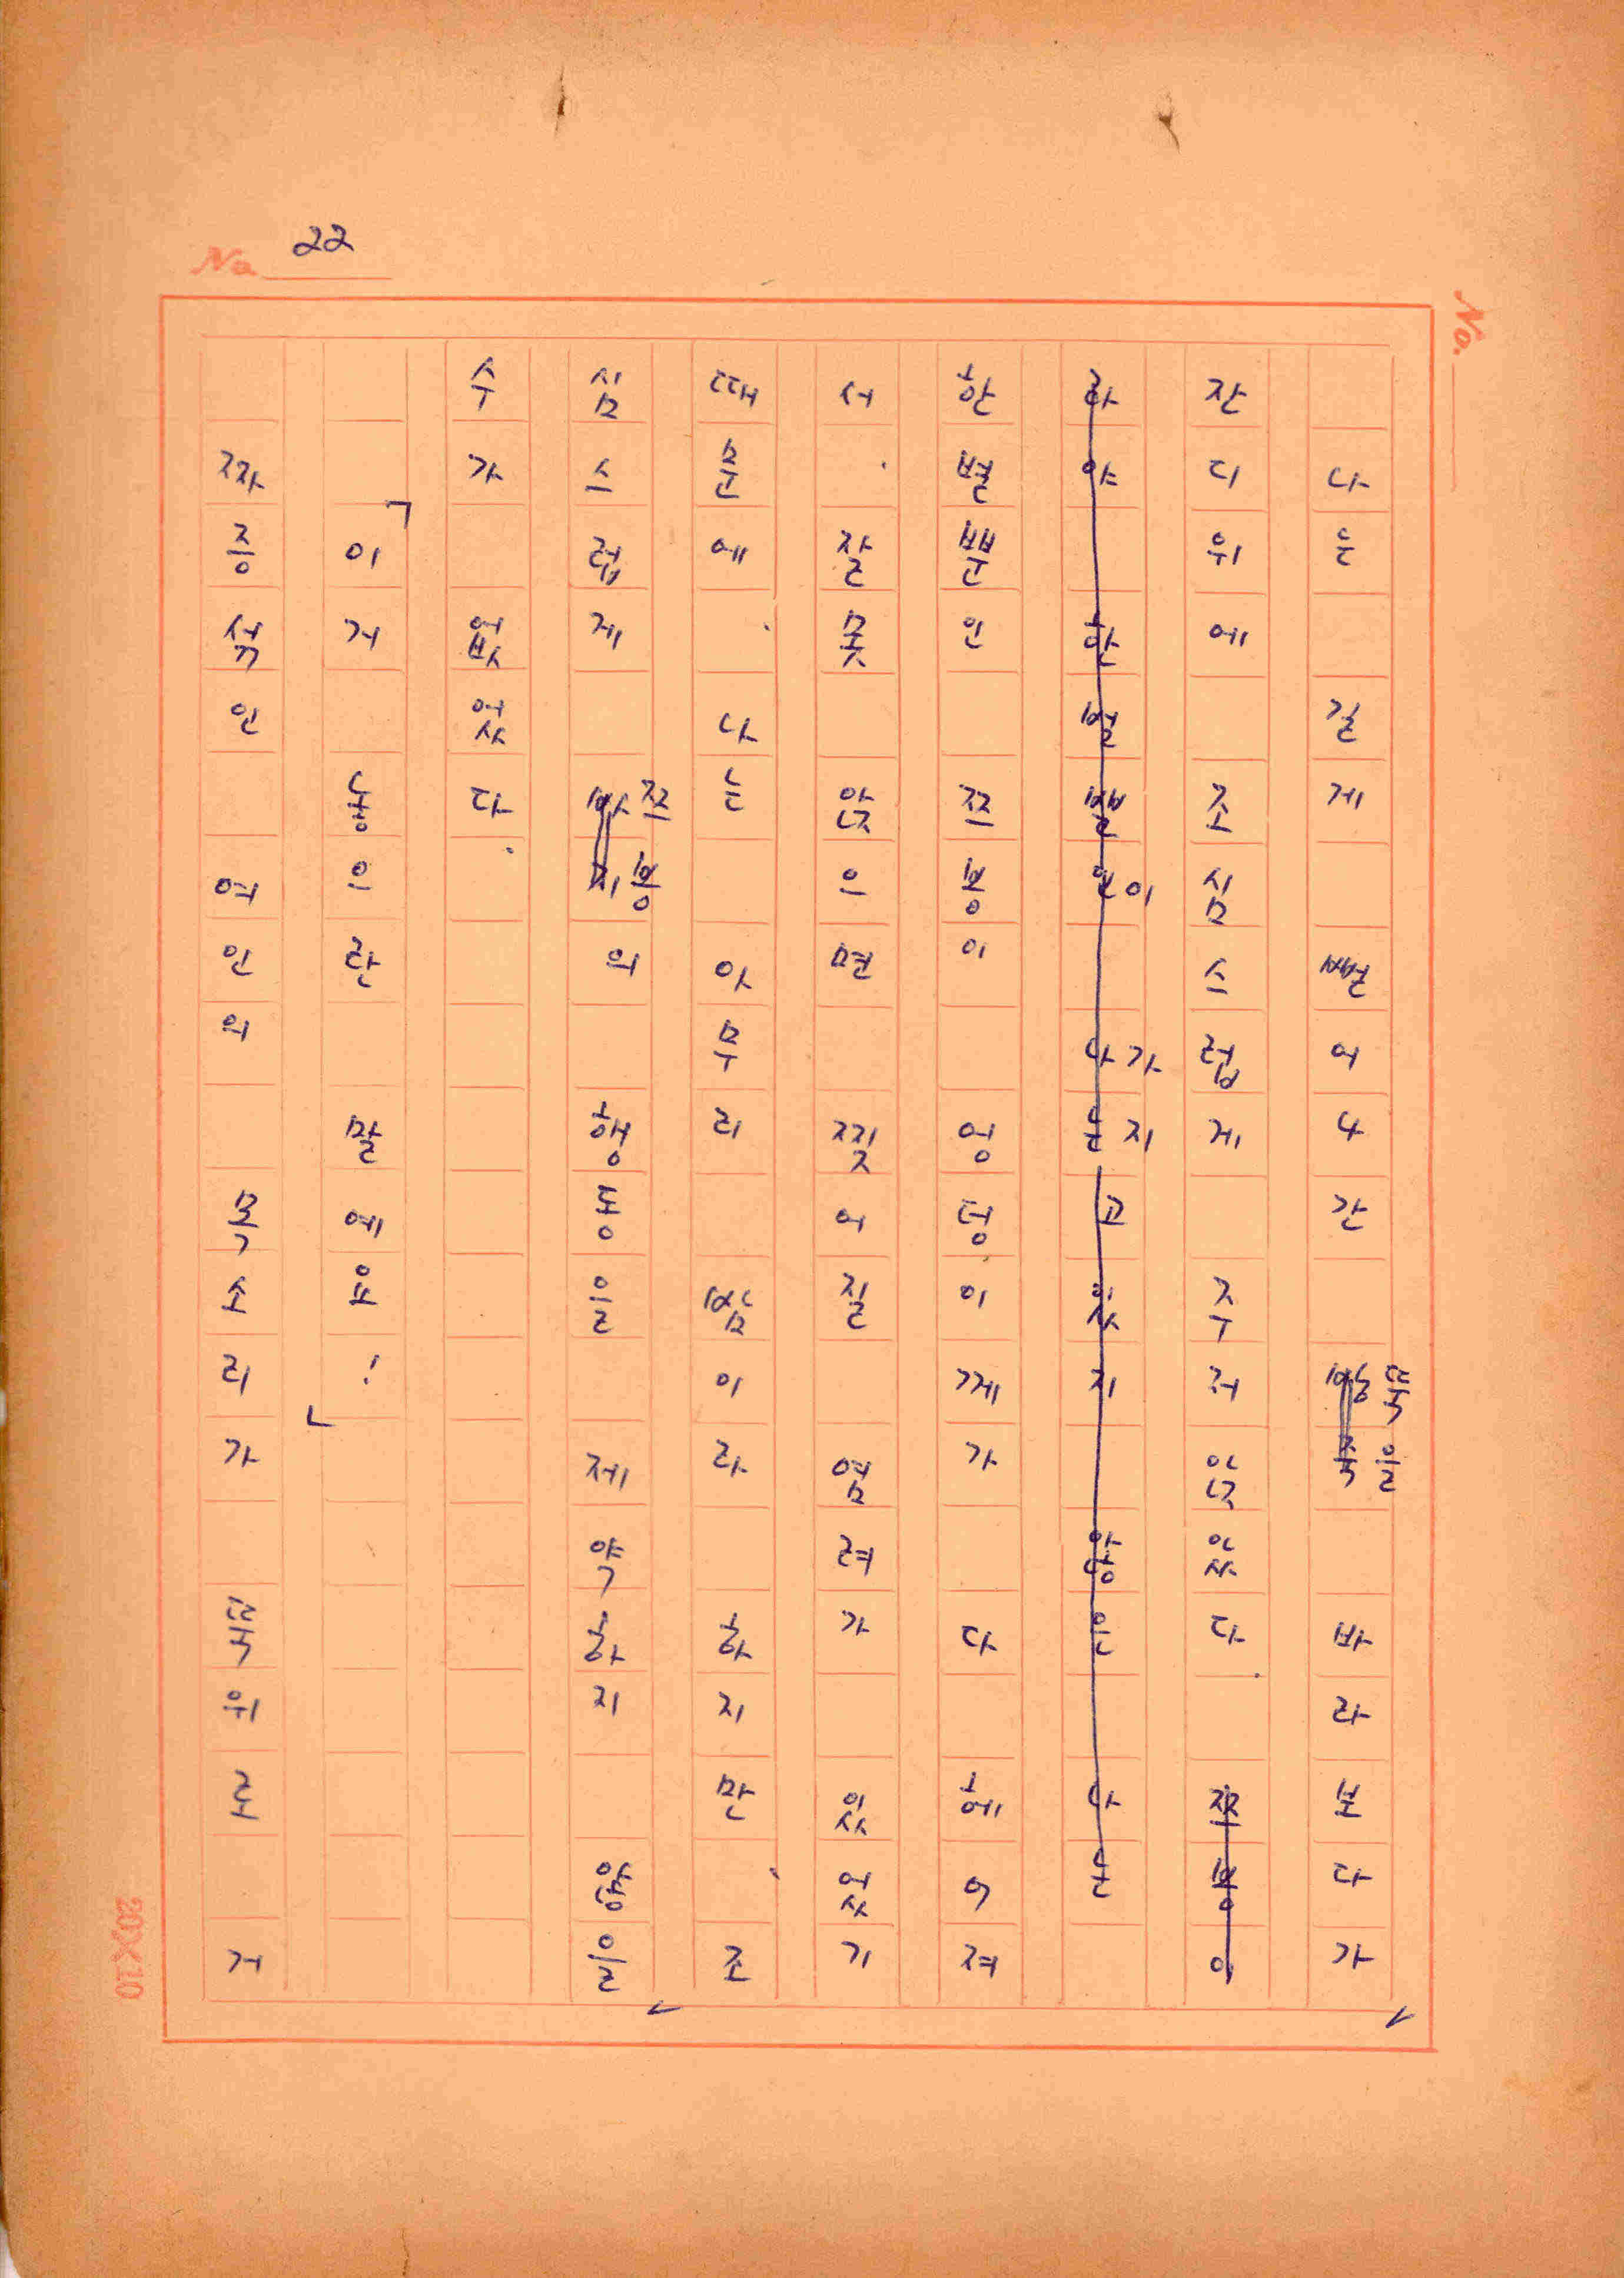 No.
No. 22
나는 길게 뻗어 나간 방죽 둑을 바라보다가
잔디위에 조심스럽게 주저앉았다. 쯔봉이
라야 한벌 가지고 있지 않은 나는
한벌뿐인 쯔봉이 엉덩이께가 다 헤어져
서. 잘못 앉으면 찢어질 염려가 있었기
때문에, 나는 아무리 밤이라 하지만, 조
심스럽게 바지 쯔봉의 행동을 제약하지 않을
수가 없었다.
「이거 놓으란 말에요!」
짜증섞인 여인의 목소리가 둑위로 거
20X10